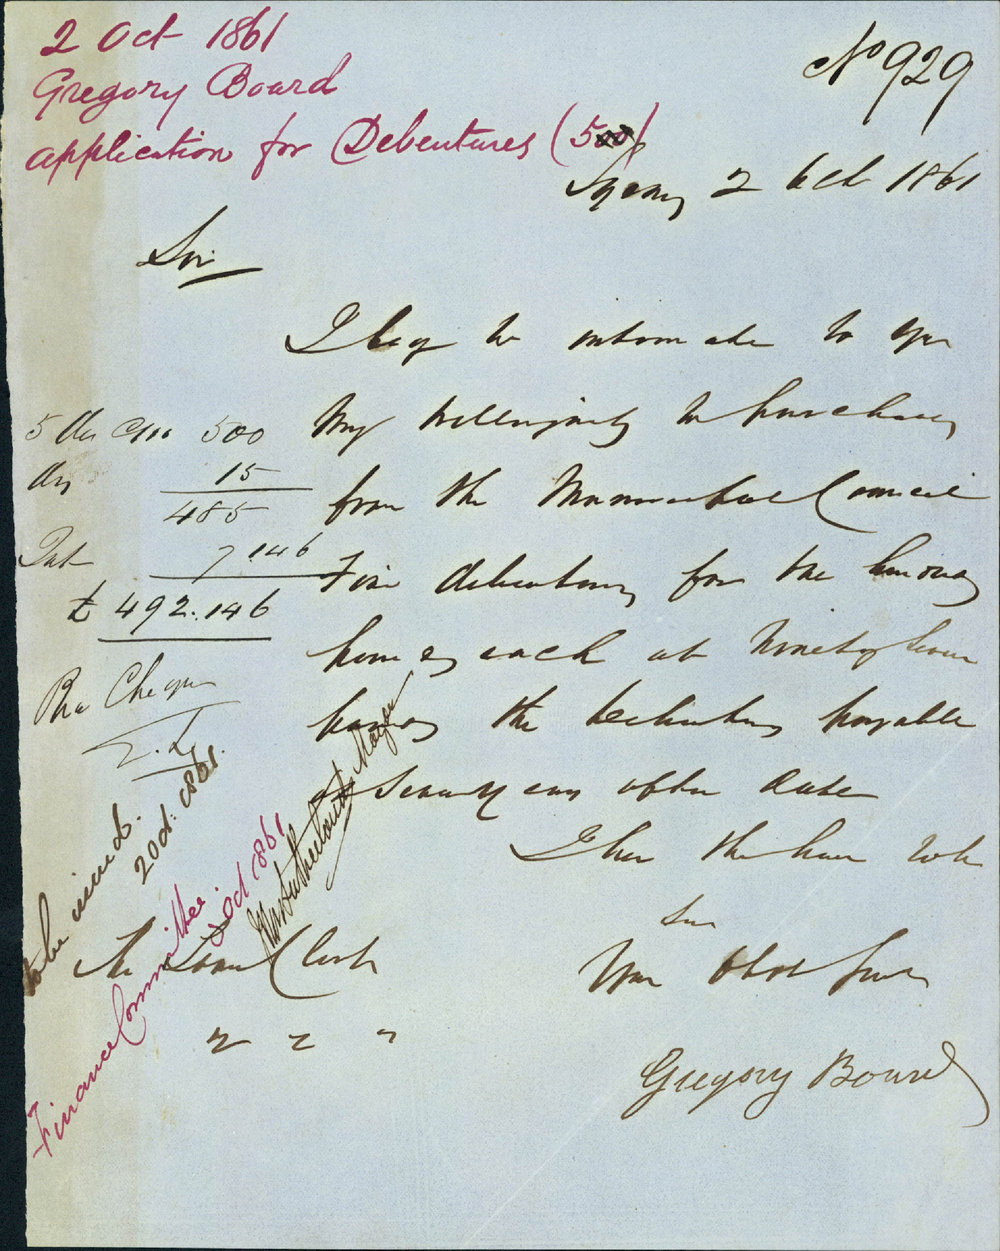 2 Oct 1861
Gregory Board
application for Debentures (500)
No 929
Sydney 2 Oct 1861
Sir
I beg to intimate to you
my willingness to purchase
from the Municipal Council
Five debentures for one hundred
pounds each at Ninety Seven
pounds the debentures payable
Seven years after date
I have the honor to be
Sir
Your Obdt Servt
Gregory Board
The Town Clerk
5 Deb 500
Dis 15
485
Int 7.14.6
£ 492.14.6
Cheque
to be issued.
2 Oct. 1861.
Sutherland Mayor
Finance Committee 3 Oct 1861